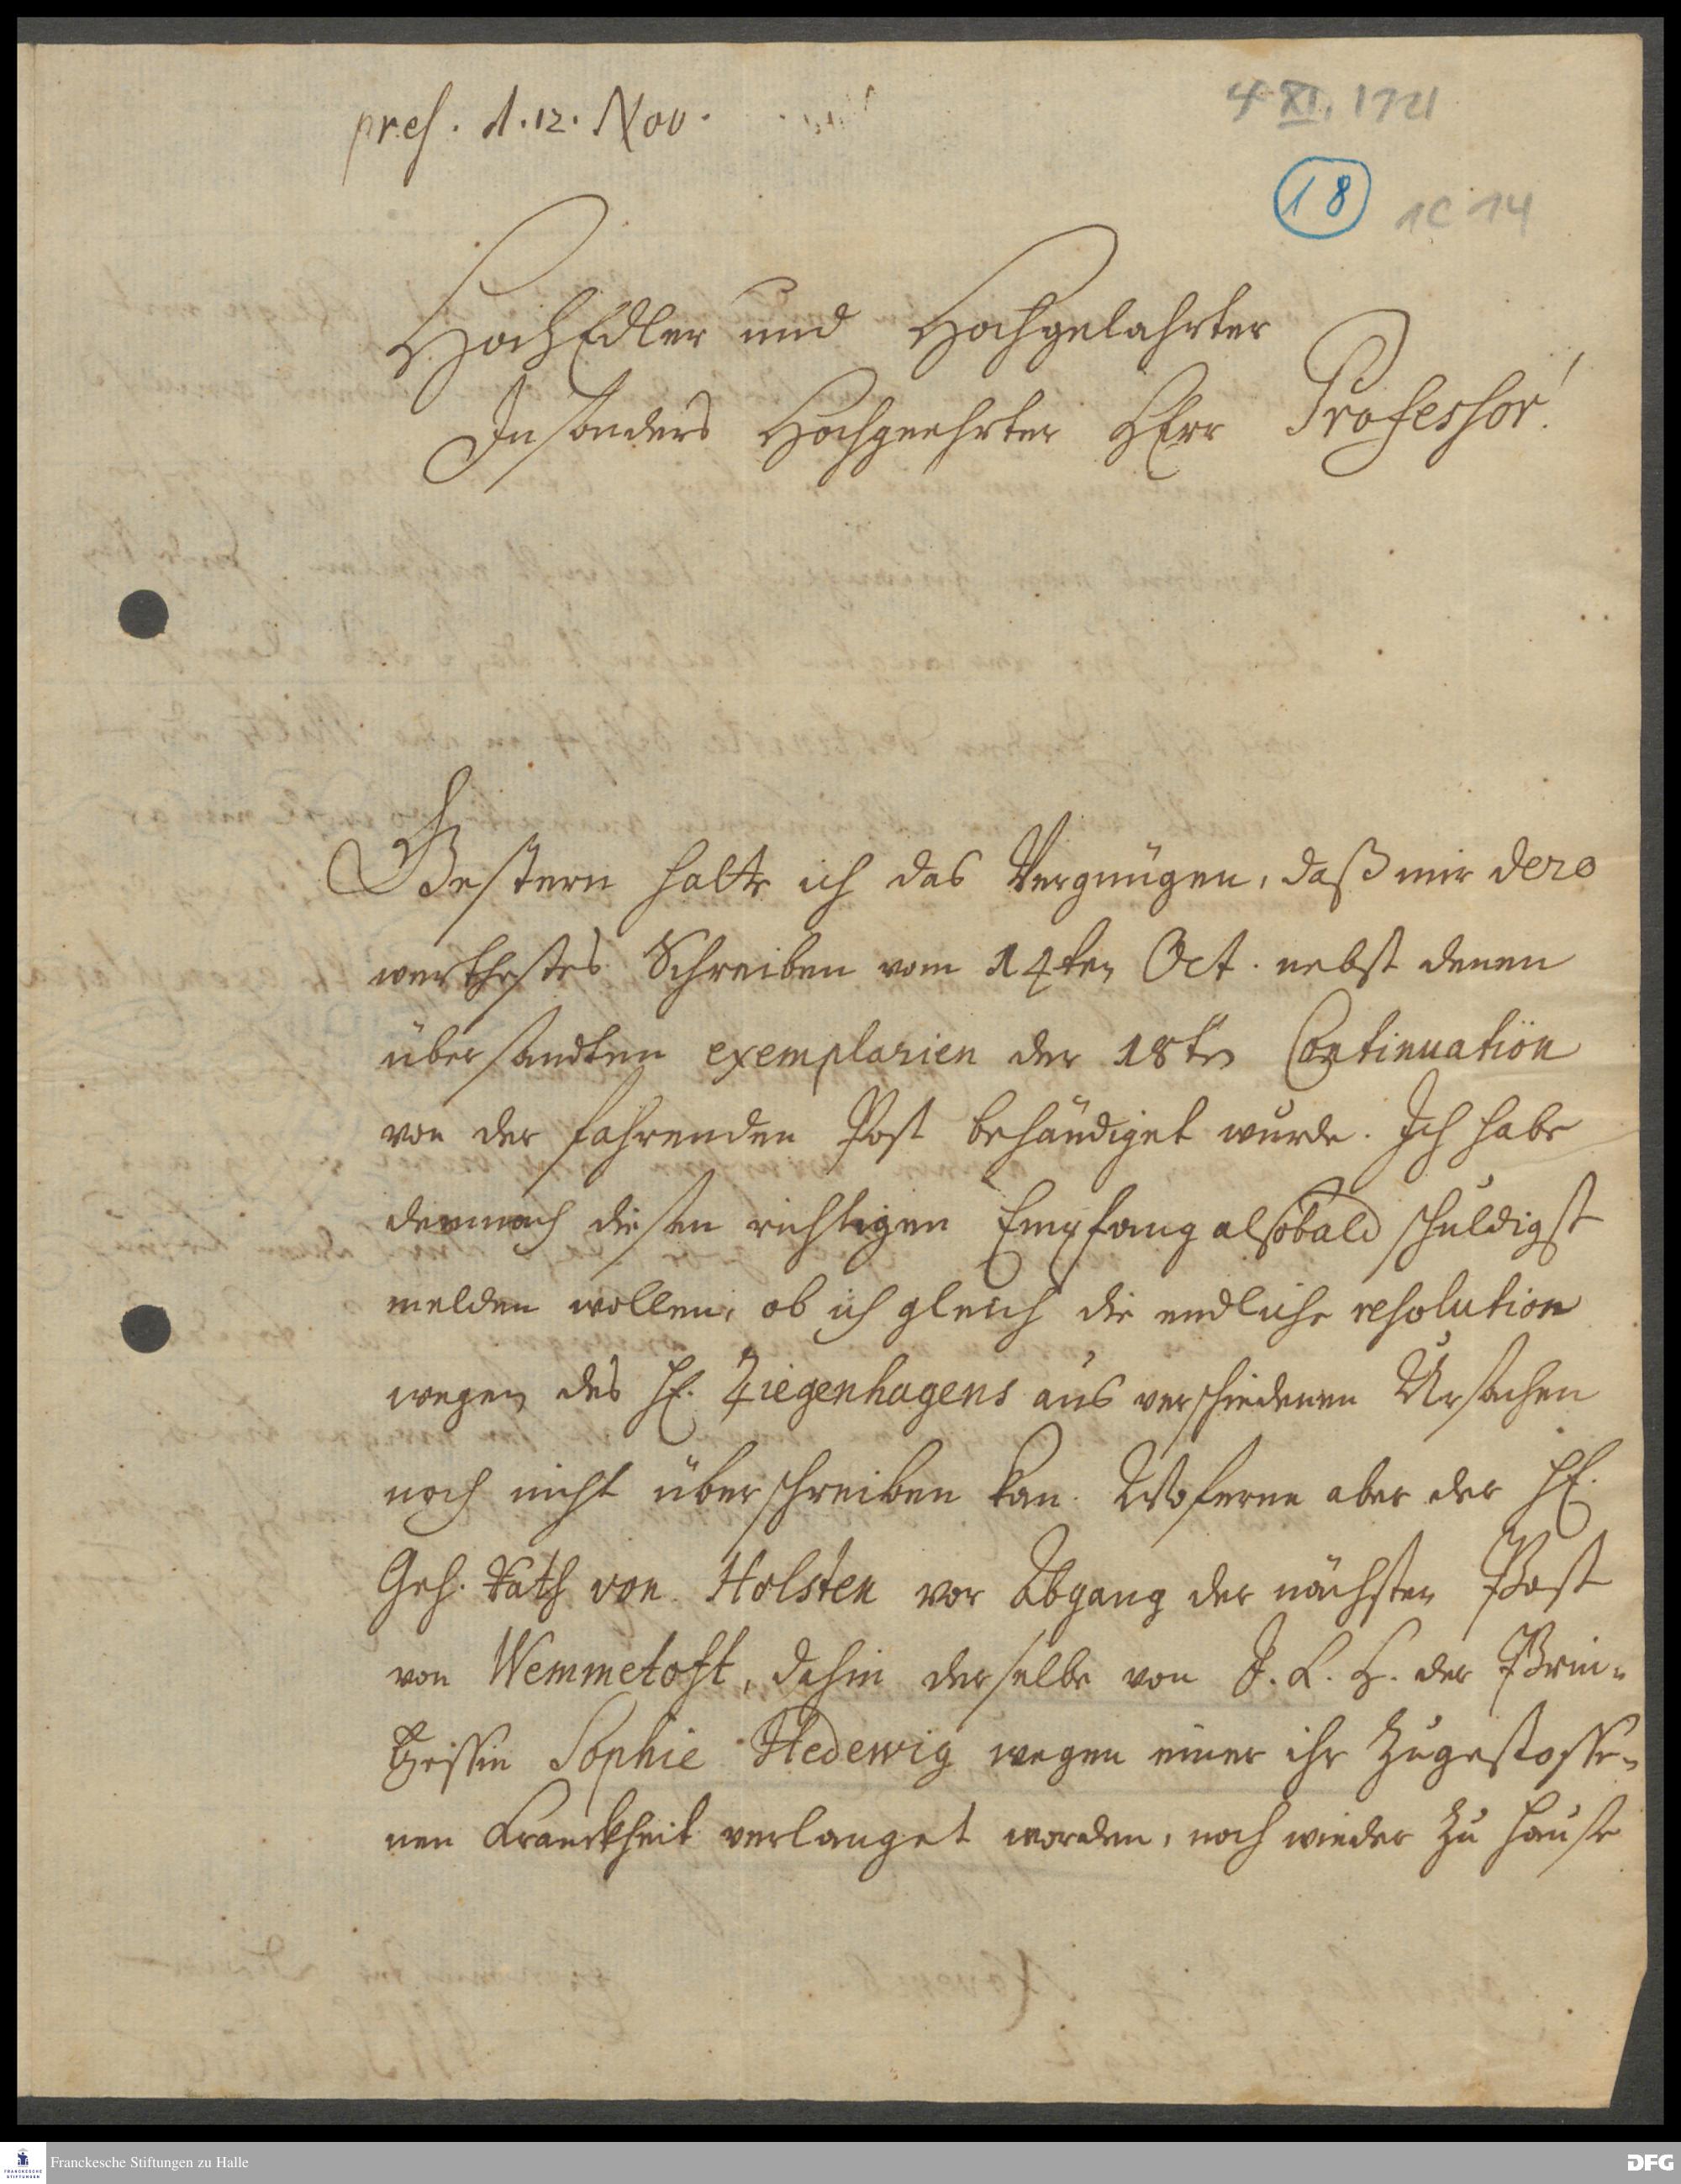 pres. d. 12. Nov.
4 XI. 1721
18
1C 14
HochEdler und Hochgelahrter
Insonders Hochgeehrter HErr Professor!
Gestern hatte ich das Vergnügen, daß mir dero
werthestes Schreiben vom 14ten Oct. nebst denen
übersandten exemplarien der 18ten Continuation
von der fahrenden Post behändiget wurde. Ich habe
demnach diesen richtigen Empfang alsobald schuldigst
melden wollen, ob ich gleich die endliche resolution
wegen des H. Ziegenhagens aus verschiedenen Ursachen
noch nicht überschreiben kan. Woferne aber der H.
Geh. Rath von Holsten vor Abgang der nächsten Post
von Wemmetoft, dahin derselbe von J. K. H. der Prin-
tzessin Sophie Hedewig wegen einer ihr zugestosse-
nen Kranckheit verlanget worden, noch wieder zu Hause
Franckesche Stiftungen zu Halle
FRANCKESCHE STIFTUNGEN
DFG